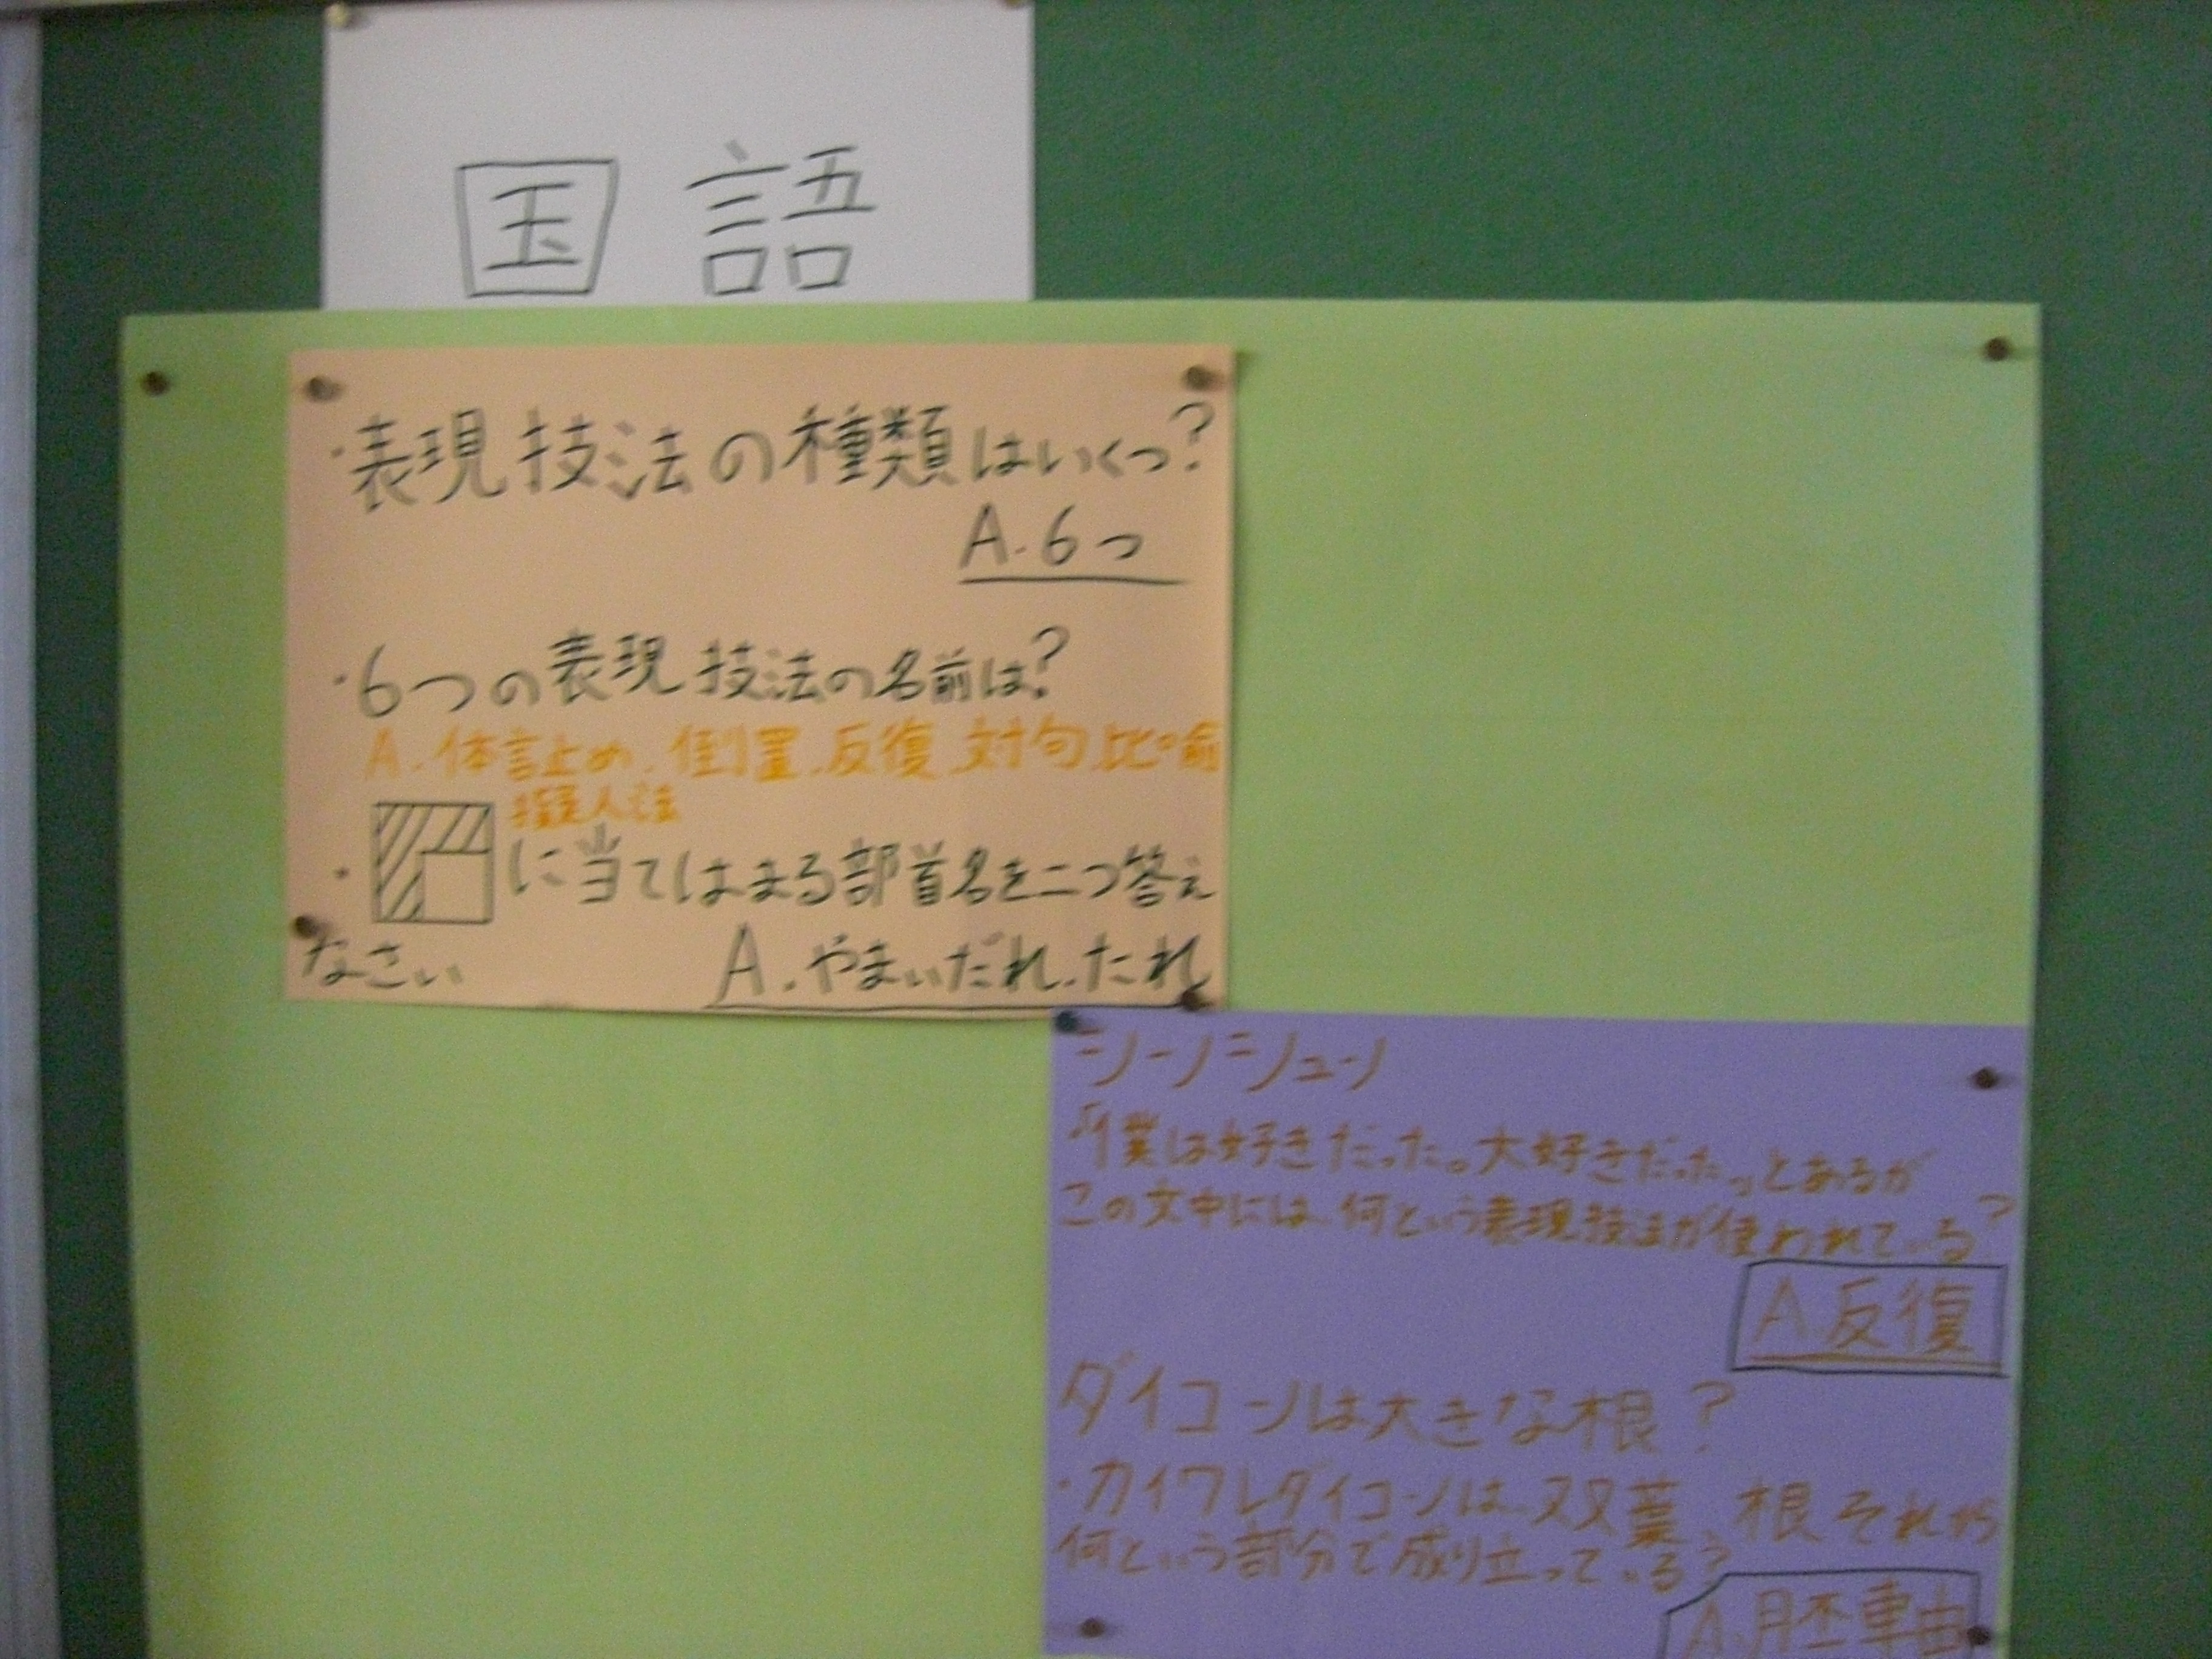 国語
・表現技法の種類はいくつ?
A.6つ
・6つの表現技法の名前は?
A.体言止め、倒置、反復、対句、比喩
擬人法
・に当てはまる部首名を二つ答え
なさい
A.やまいだれ.たれ
シンシュン
「僕は好きだった。大好きだった。」とあるが
この文中には、何という表現技法が使われている?
A.反復
ダイコンは大きな根?
・カイワレダイコンは、双葉、根それから
何という部分で成り立っている?
A.胚軸